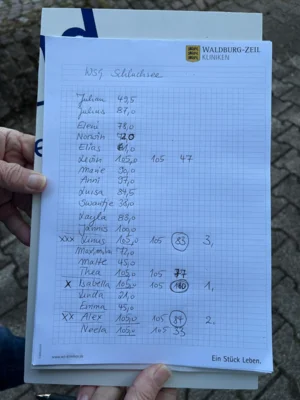 WALDBURG-ZEIL
KLINIKEN
WSG Schluchsee
Julian 49,5
Julius 87,0
Eleni 78,0
Norwin 20
Elias 61,0
Levin 105,0 105 47
Marie
Anni 97,0
Luisa 84,5
Swantje
Layla 83,0
100,0
xxx Linus 105,0 105 93 3.
Maximilian
Malte 45,0
Thea 105,0 105 77
x Isabella 105,0 105 100 1.
Linda 21,0
Emma 45,0
xx Alex 105,0 105 97 2.
Neela 105,0 105 33
Ein Stück Leben.